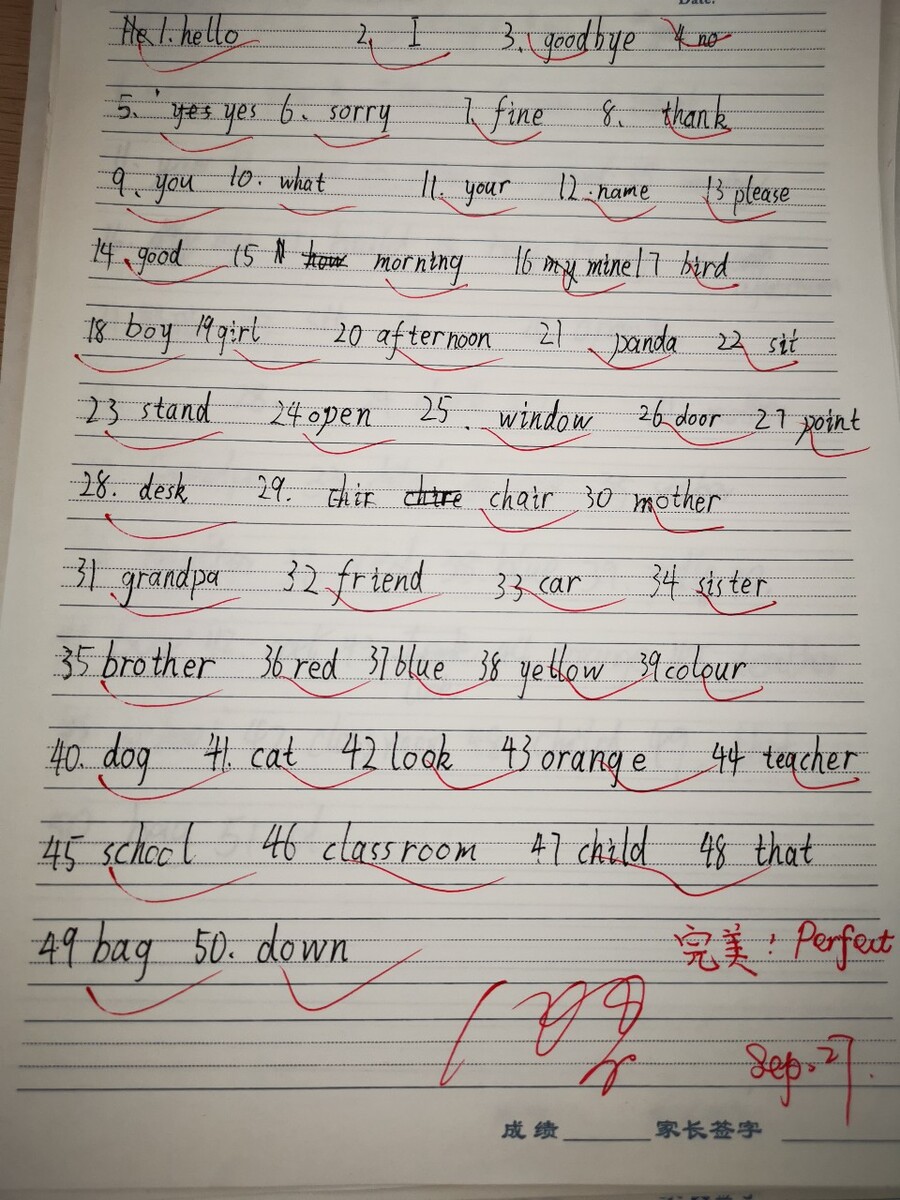 Date:
He 1. hello 2, I 3. goodbye 4 no
5. yes yes 6、 sorry 7. fine 8、 thank
9、 you 10. what 11. your 12. name 13 please
14 good 15 N how morning 16 my mine 17 bird
18 boy 19 girl 20 afternoon 21 panda 22 sit
23 stand 24 open 25. window 26 door 27 point
28. desk 29. chir chire chair 30 mother
31 grandpa 32 friend 33 car 34 sister
35 brother 36 red 37 blue 38 yellow 39 colour
40. dog 41. cat 42 look 43 orange 44 teacher
45 school 46 classroom 47 child 48 that
49 bag 50. down 完美！Perfect
Sep. 27.
成绩 家长签字